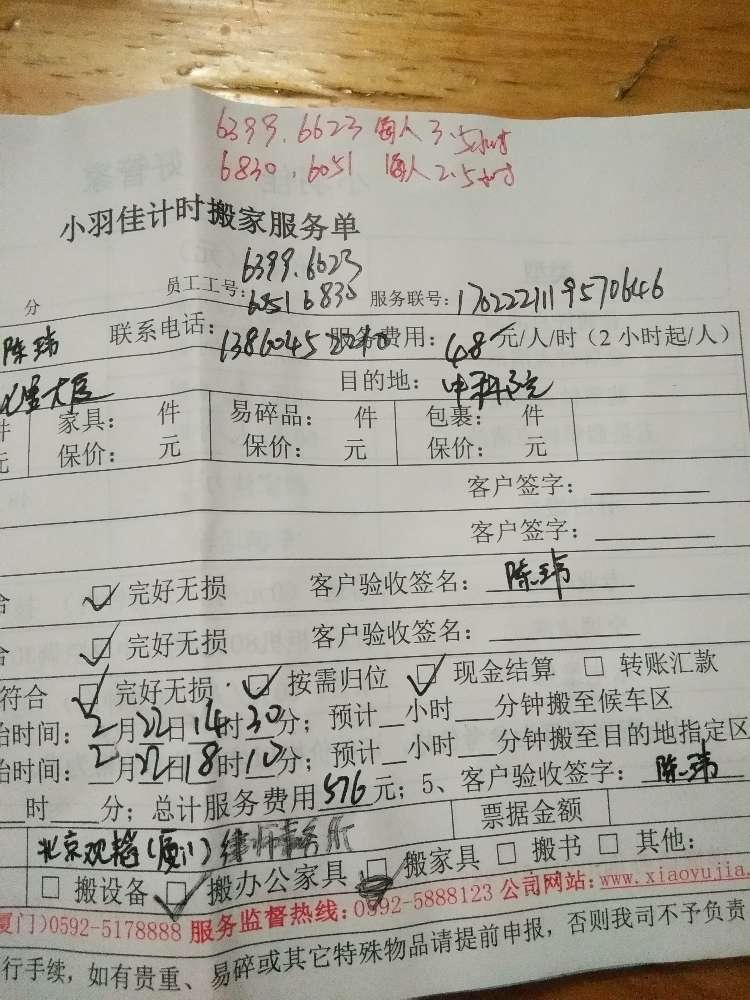 6399.6623 每人3.5小时
6830.6051 每人2.5小时
小羽佳计时搬家服务单
分 员工工号: 6399.6623 6051 6830 服务联号: 1702221119570646
陈玮 联系电话: 服务费用: 48 元/人/时(2小时起/人)
目的地: 中科院
件 家具: 件 易碎品: 件 包裹: 件
元 保价: 元 保价: 元 保价: 元
客户签字:
客户签字:
合 ☑ 完好无损 客户验收签名: 陈玮
合 ☑ 完好无损 客户验收签名:
符合 ☑ 完好无损 ☑ 按需归位 ☑ 现金结算 □ 转账汇款
始时间: 2月22日14时30分; 预计__小时___分钟搬至候车区
始时间: 2月22日18时10分; 预计__小时___分钟搬至目的地指定区
___时___分; 总计服务费用576元; 5、客户验收签字: 陈玮
票据金额
北京观韬(厦门)律师事务所
□ 搬设备 ☑ 搬办公家具 □ 搬家具 □ 搬书 □ 其他:
厦门)0592-5178888 服务监督热线:0592-5888123 公司网站:www.xiaoyujia.
行手续,如有贵重、易碎或其它特殊物品请提前申报,否则我司不予负责